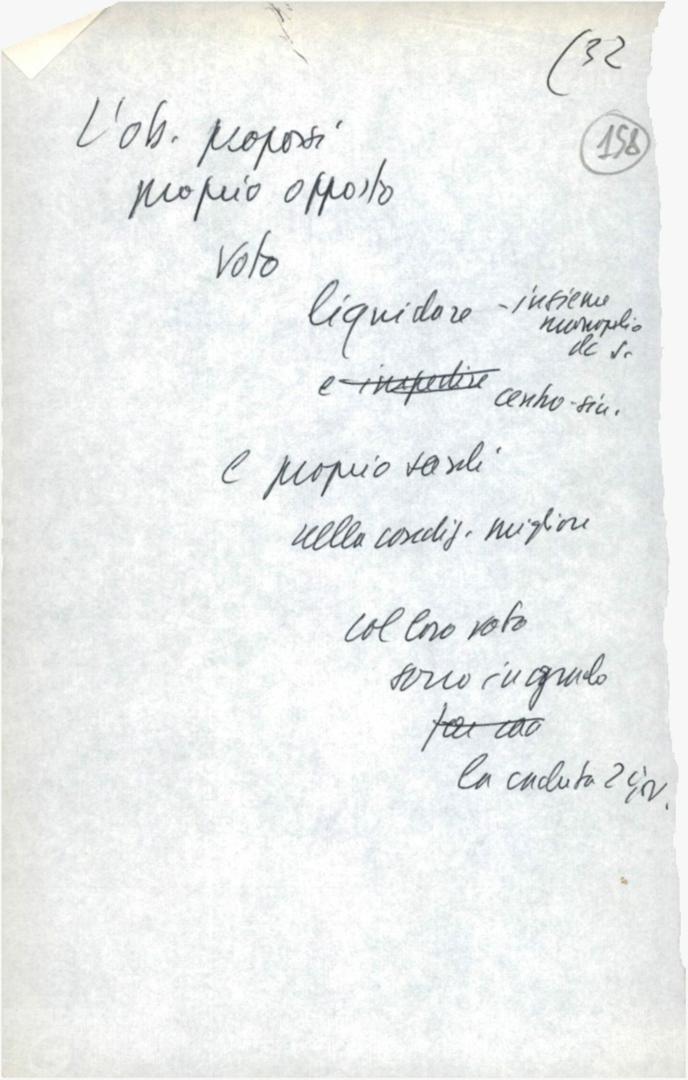 (32
158
L'ob. proporsi
proprio opposto
voto
liquidare - insieme
monopolio
dc s.
e impedire centro-sin.
e proprio sardi
nella condiz. migliore
col loro voto
sono in grado
la caduta